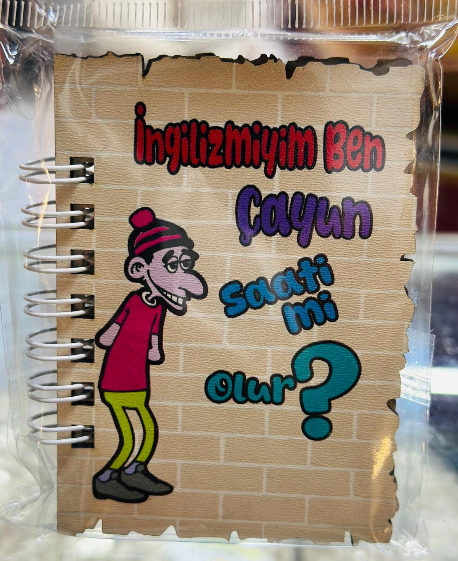 İngilizmiyim Ben
Çayun
saati
mi
Olur?